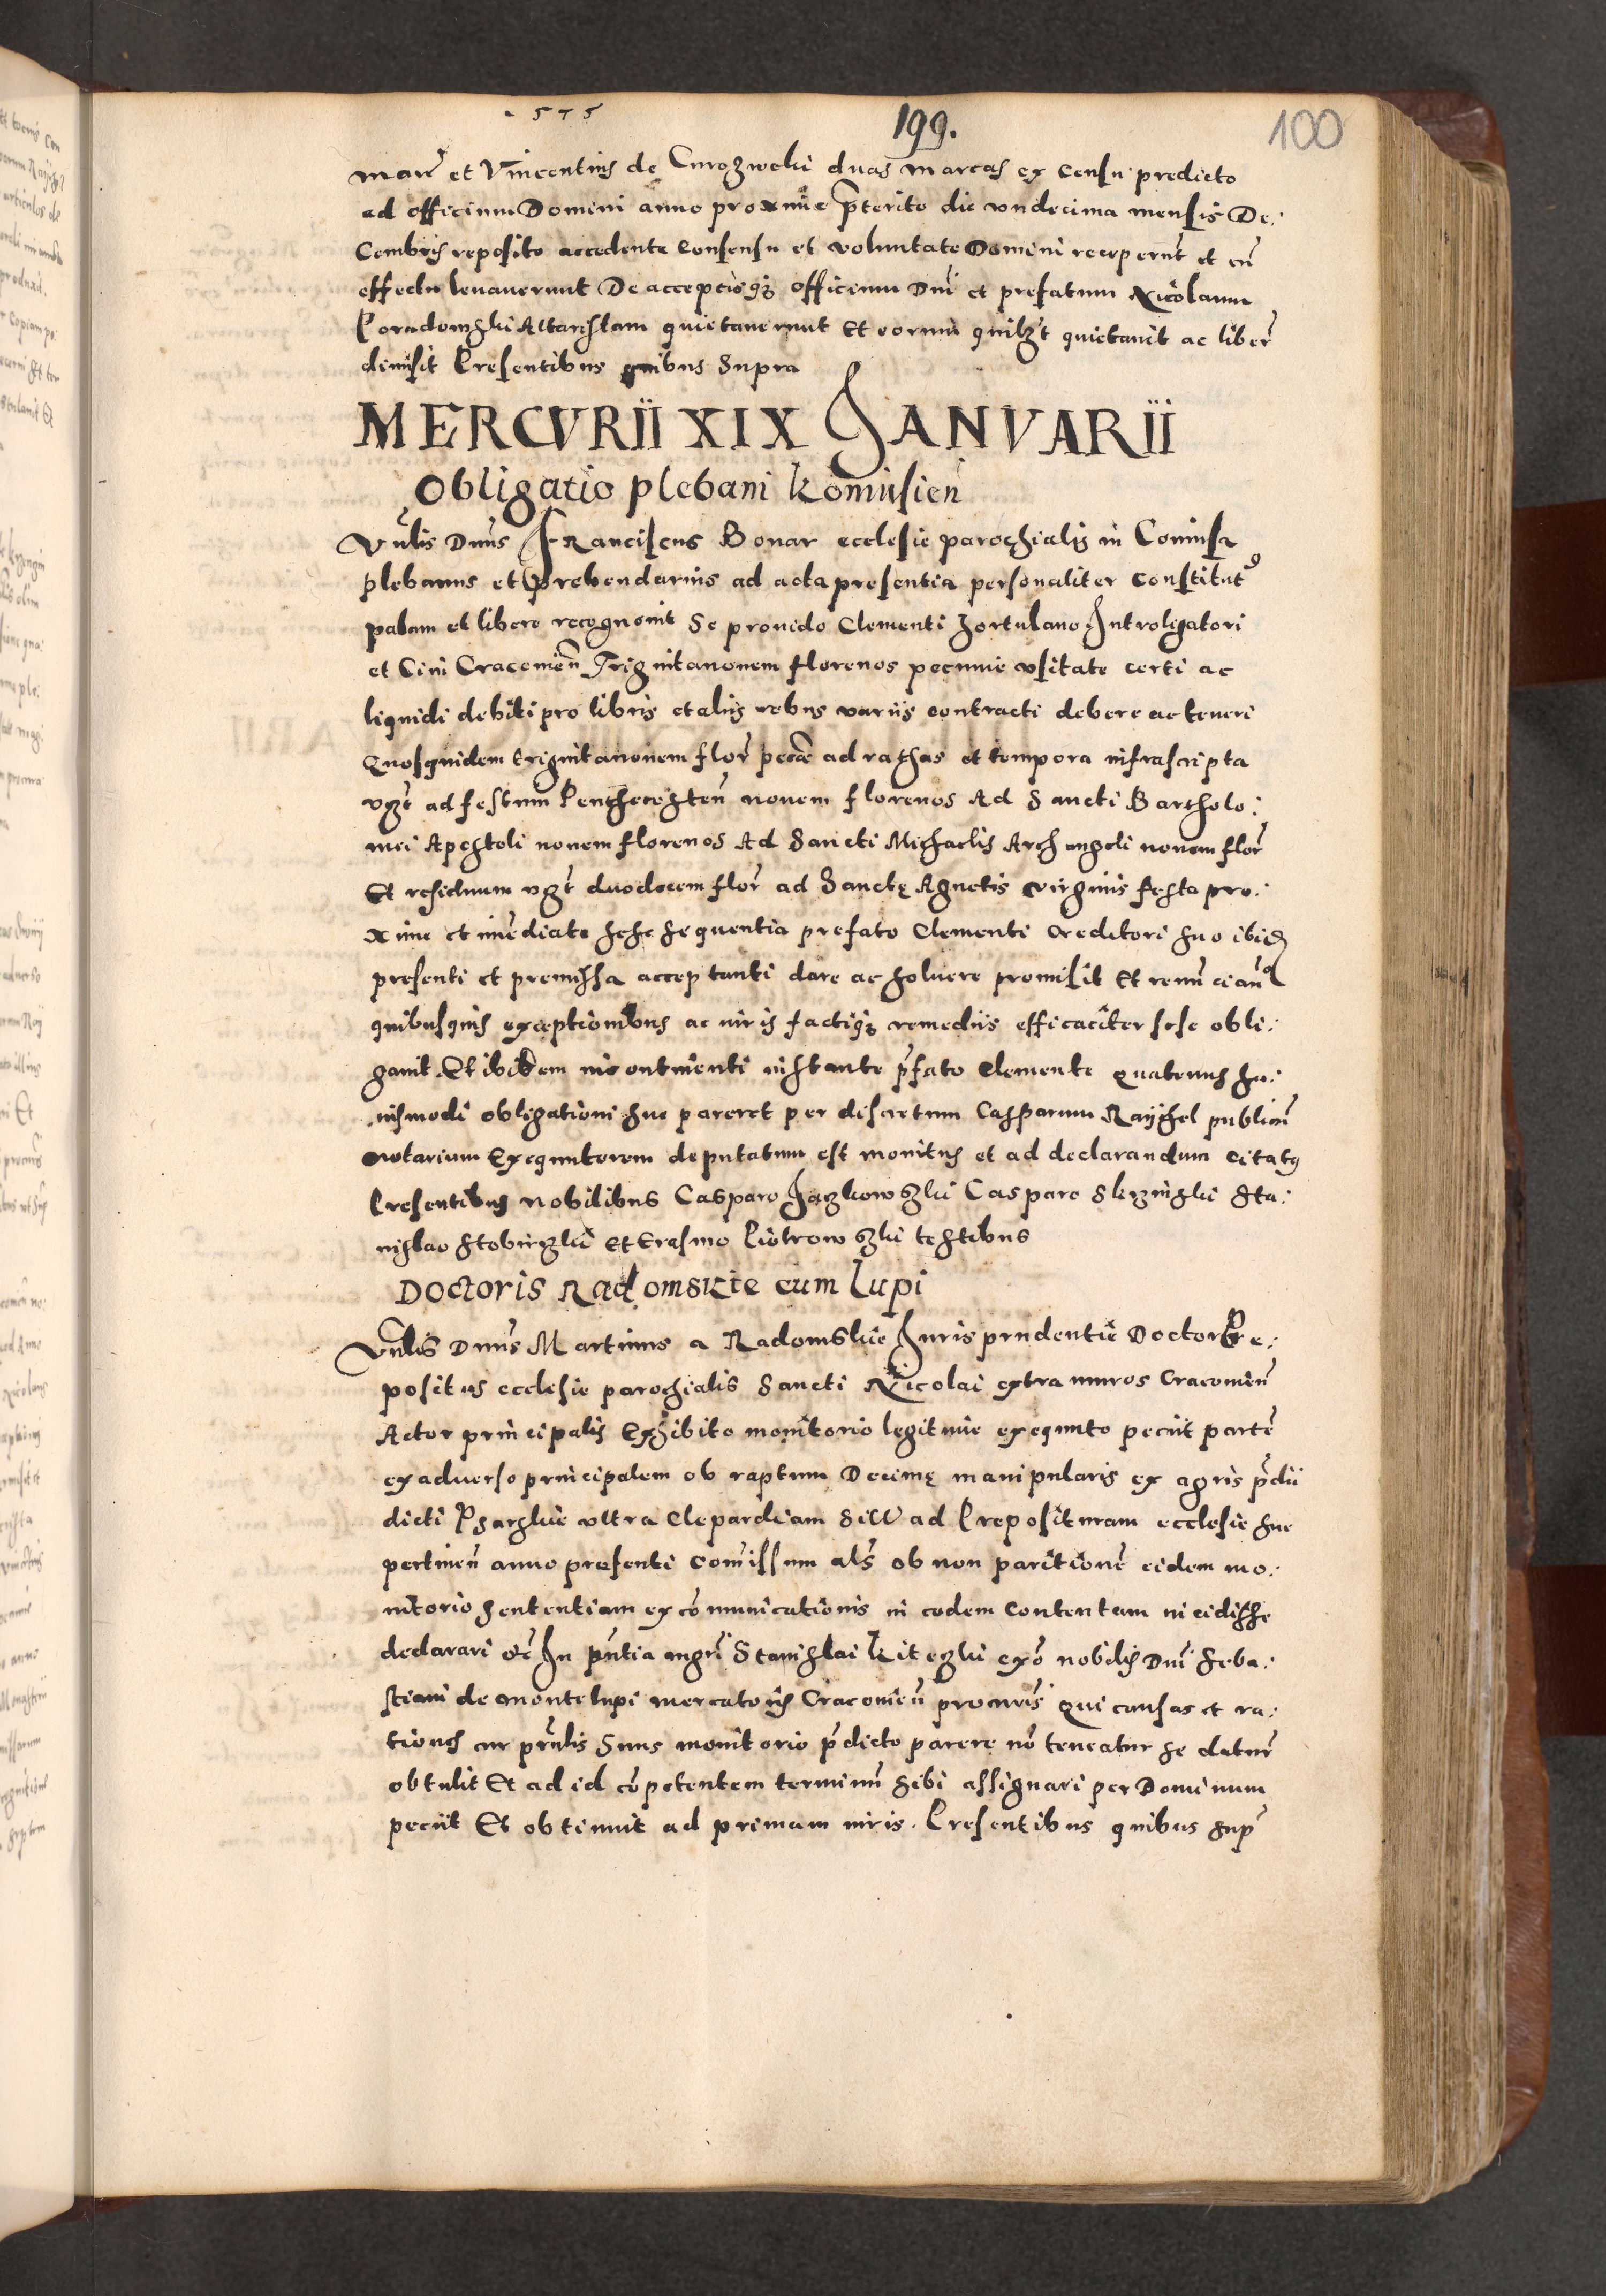 1575
199.
100
mar et Vincentius de Curozweki duas marcas ex censu predicto
ad officium Domini anno proxime preterito die vndecima mensis De:
Cembris reposito accedente consensu et voluntate Domini receperunt et cum
effectu leuauerunt De acceptisque officium Dni et prefatum Nicolaum
Poradomski Altaristam quietauerunt Et eorum quilibet quietauit ac liber
dimisit Presentibus quibus Supra
MERCVRII XIX JANVARII
Obligatio plebani Komusien
Vnlis Dnus Franciscus Bonar ecclesie parochialis in Comusa
plebanus et prebendarius ad acta presentia personaliter constitut9
palam et libere recognouit Se prouido Clementi Hortulano Introligatori
et Ciui Cracouien Trigintanouem florenos pecunie vsitate certi ac
liquidi debiti pro libris et aliis rebus variis contracti debere ac teneri
Quosquidem trigintanouem flor pecae ad rathas et tempora infrascripta
vzt ad festum Penthecosten nouem florenos Ad Sancti Bartholo:
mei Apostoli nouem florenos Ad Sancti Michaelis Archangeli nouem flor
Et residuum vzt duodecem flor ad Sanctę Agnetis virginis festa pro:
xime et imediate sese sequentia prefato Clementi Creditori suo ibid
presenti et premissa acceptanti dare ac soluere promisit Et renunciand
quibusuis exceptionibus ac iuris factique remediis efficaciter sese obli:
gauit Et ibidem incontinenti instante pfato Clemente quatenus hu:
iusmodi obligationi sue pareret per discretum Casparum Rayschel publicum
notarium Exequutorem deputatum est monitus et ad declarandum citatus
Presentibus Nobilibus Casparo Jaczkowski Casparo Skrzinski Sta:
nislao Stobirzski Et Erasmo Piotrowski testibus
Doctoris Radomskie cum Lupi
Vnlis Dnus Martinus a Radomskie Juris prudentie Doctor Pre:
positus ecclesie parochialis Sancti Nicolai extra muros Cracouien
Actor principalis Exhibito monitorio legitime exequuto peciit parte
ex aduerso principalem ob raptum Decimę manipularis ex agris pdii
dicti Psarskie vltra Clepardiam sitt ad Preposituram ecclesie sue
pertinen anno presenti comissum als ob non paritione eidem mo:
nitorio sententiam excomunicationis in eodem contentam in eid esse
declarari etc In pntia mgri Stanislai Kiteczki exo nobilis Dni Seba:
stiani de Montelupi mercatoris Cracouien procuris qui causas et ra:
tiones cur prnlis Suus monitorio pdicto parere no teneatur se datur
obtulit Et ad id copetentem terminu sibi assignari per Dominum
peciit Et obtinuit ad primam iuris. Presentibus quibus sup